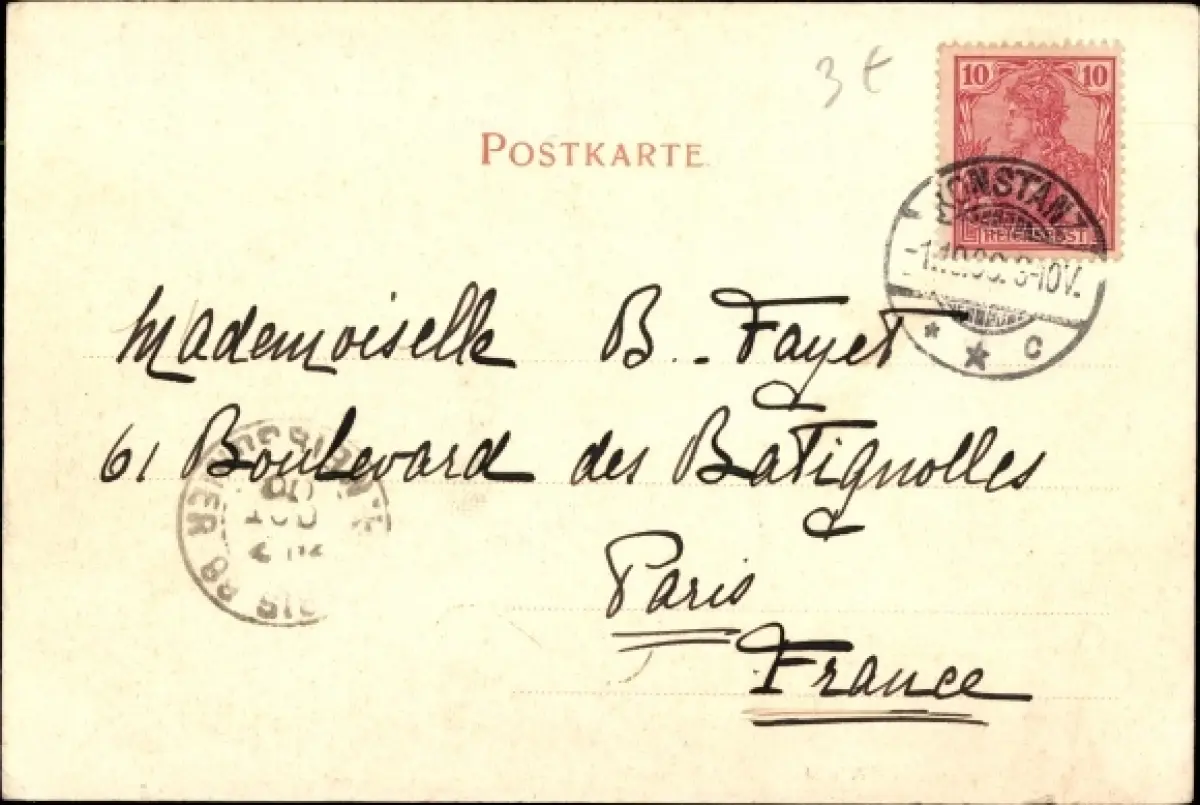 3 €
POSTKARTE
10 10
REICHSPOST
KONSTANZ
* * C
Mademoiselle B. Fayet
61 Boulevard des Batignolles
Paris
France